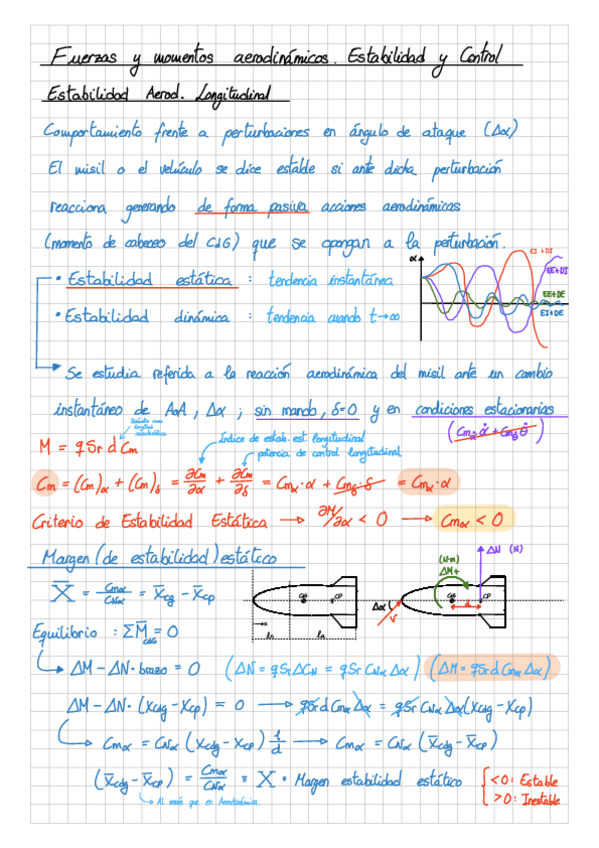 Fuerzas y momentos aerodinámicos. Estabilidad y Control
Estabilidad Aerod. Longitudinal
Comportamiento frente a perturbaciones en ángulo de ataque (Δα)
El misil o el vehículo se dice estable si ante dicha perturbación
reacciona generando de forma pasiva acciones aerodinámicas
(momento de cabeceo del CdG) que se opongan a la perturbación.
α
EI+DI
EE+DI
EE+DE
EI+DE
• Estabilidad estática : tendencia instantánea
• Estabilidad dinámica : tendencia cuando t→∞
Se estudia referida a la reacción aerodinámica del misil ante un cambio
instantáneo de AoA, Δα ; sin mando, δ=0 y en condiciones estacionarias
(Cmα̇ α̇ + Cmθ̇ θ̇)
longitud característica
M = q Sr d Cm
Índice de estab. est. longitudinal
potencia de control longitudinal
Cm = (Cm)α + (Cm)δ = ∂Cm/∂α + ∂Cm/∂δ = Cmα·α + Cmδ·δ = Cmα·α
Criterio de Estabilidad Estática → ∂M/∂α < 0 → Cmα < 0
Margen (de estabilidad) estático
X̄ = Cmα/CNα = X̄cg - X̄cp
CG
CP
ln
(N·m)
ΔM+
ΔN (N)
Δα
V
CG
CP
Equilibrio : ΣM̄CdG = 0
ΔM - ΔN·brazo = 0 (ΔN = q Sr ΔCN = q Sr CNα Δα) (ΔM = q Sr d Cmα Δα)
ΔM - ΔN·(Xcdg - Xcp) = 0 → q Sr d Cmα Δα = q Sr CNα Δα (Xcdg - Xcp)
Cmα = CNα (Xcdg - Xcp) 1/d → Cmα = CNα (X̄cdg - X̄cp)
(X̄cdg - X̄cp) = Cmα/CNα = X • Margen estabilidad estático { <0: Estable
>0: Inestable
Al revés que en Aerodinámica.